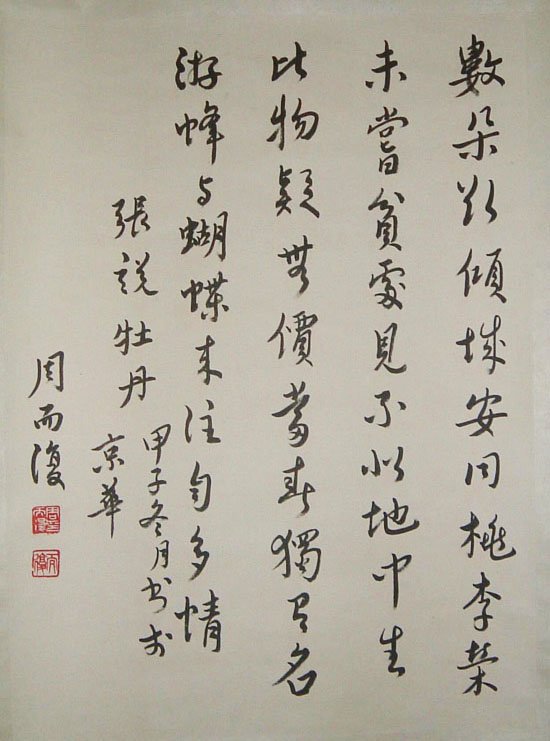 數朵欲傾城安同桃李榮
未嘗貧處見不似地中生
此物疑無價當春獨有名
游蜂与蝴蝶来往自多情
張説牡丹
甲子冬月书於
京華
周而復